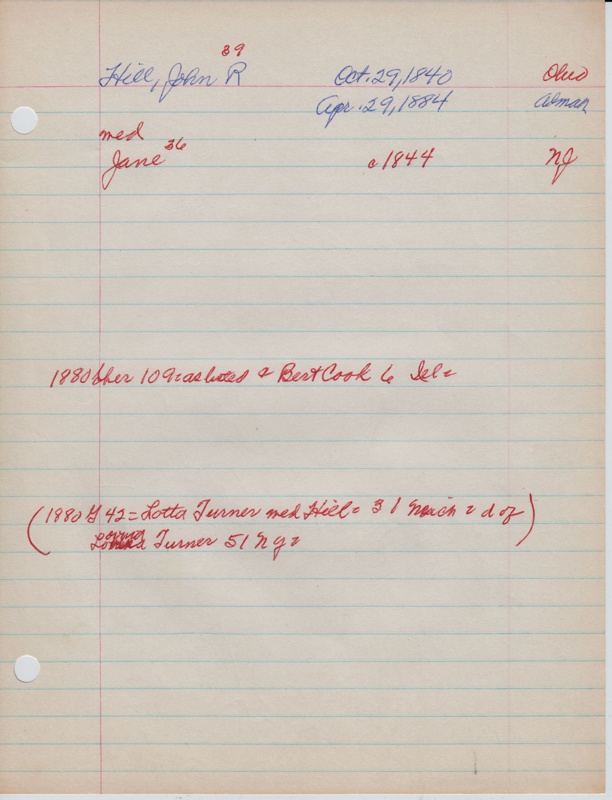 39
Hill, John R Oct. 29, 1840 Ohio
Apr. 29, 1884 Alman
med
36
Jane c1844 NJ
1880 Sher 109 = as listed & Bert Cook 6 Del =
(1880 G 42 = Lotta Turner med Hill = 31 Mich = d of)
Turner 51 NY =